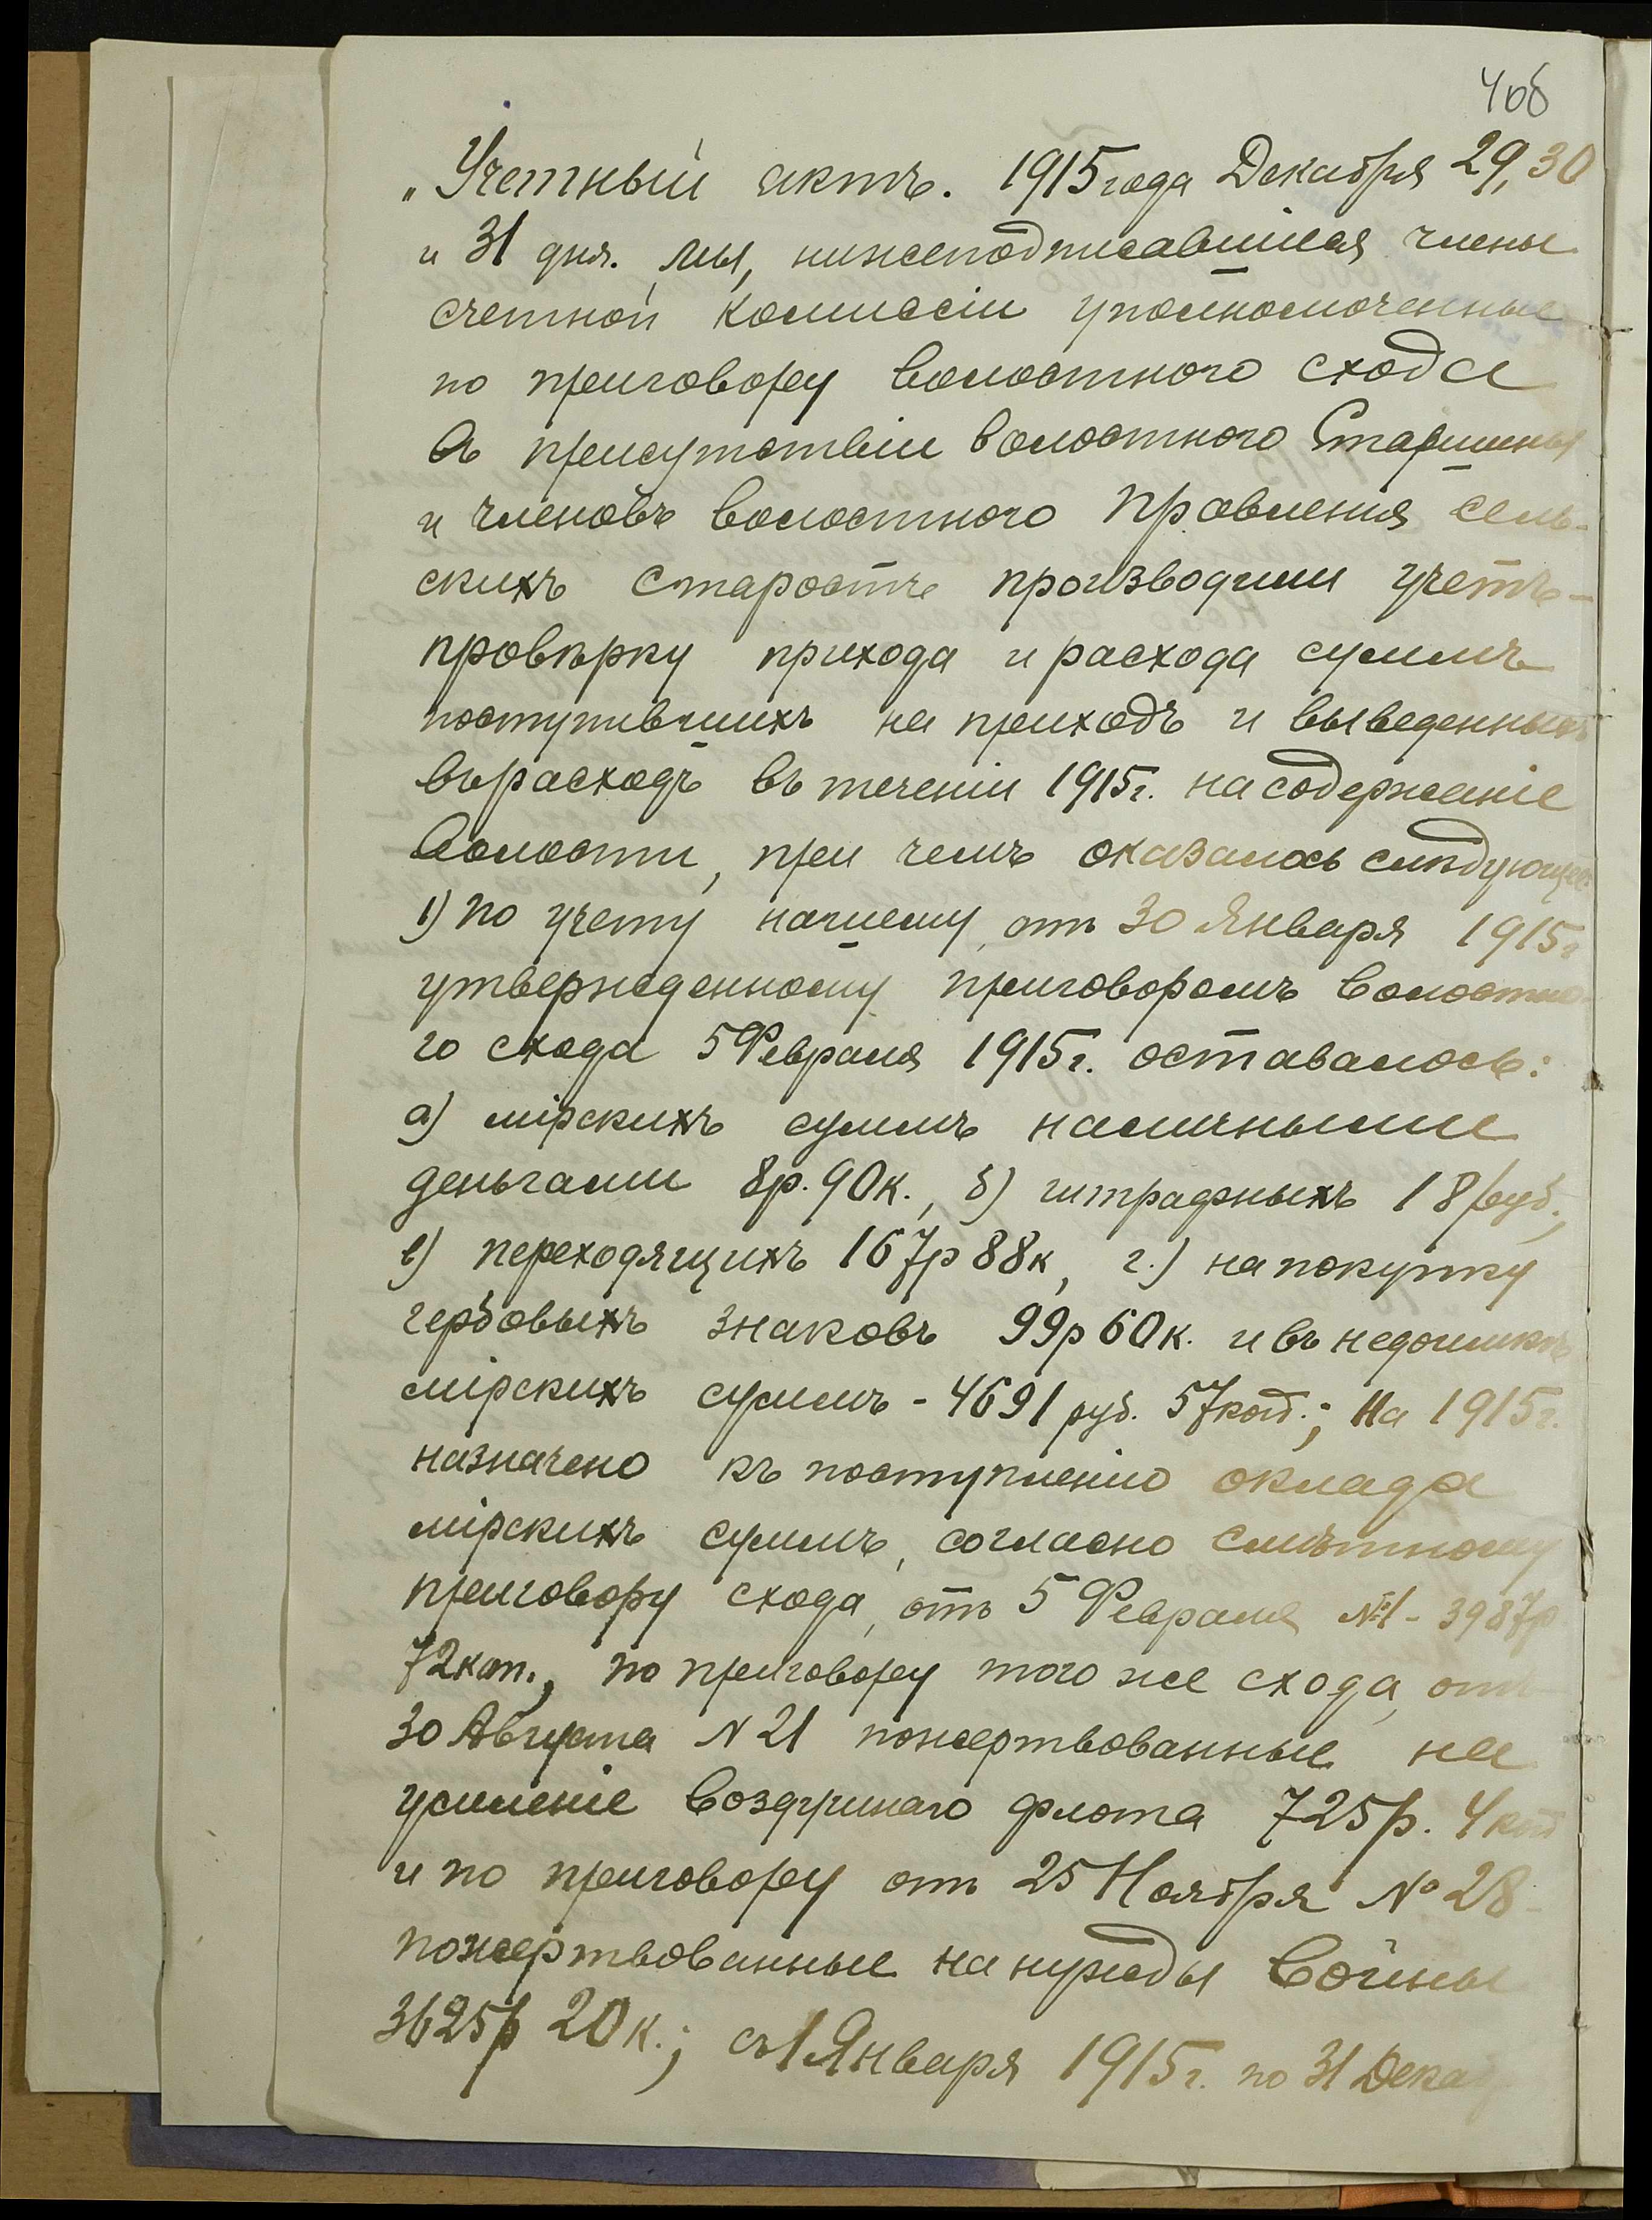 4об
„Учетный актъ. 1915 года Декабря 29, 30
и 31 дня. Мы, нижеподписавшіеся члены
счетной Комиссіи уполномоченные
по приговору волостного схода
въ присутствіи волостного Старшины
и членовъ волостного Правления сель-
скихъ старостъ производили учетъ-
провѣрку прихода и расхода суммъ
поступившихъ на приходъ и выведенныхъ
въ расходъ въ теченіи 1915 г. на содержаніе
волости, при чемъ оказалось слѣдующее
1) По учету нашему, отъ 30 Января 1915 г
утвержденному приговоромъ волостно
го схода 5 Февраля 1915 г. оставалось:
а) мірскихъ суммъ наличными
деньгами 8 р. 90 к., б) штрафныхъ 18 руб.,
в) переходящихъ 167 р 88 к, г.) на покупку
гербовыхъ знаковъ 99 р 60 к. и въ недоимкѣ
мірскихъ суммъ - 4691 руб. 57 коп.; На 1915 г.
назначено къ поступленію оклада
мірскихъ суммъ, согласно смѣтному
приговору схода, отъ 5 Февраля №1 - 3987 р
72 коп., по приговору того же схода, отъ
30 Августа N 21 пожертвованные на
усиленіе воздушнаго флота 725 р. 4 коп
и по приговору отъ 25 Ноября № 28 -
пожертвованные на нужды войны
3625 р 20 к.; съ 1 Января 1915 г. по 31 Декаб